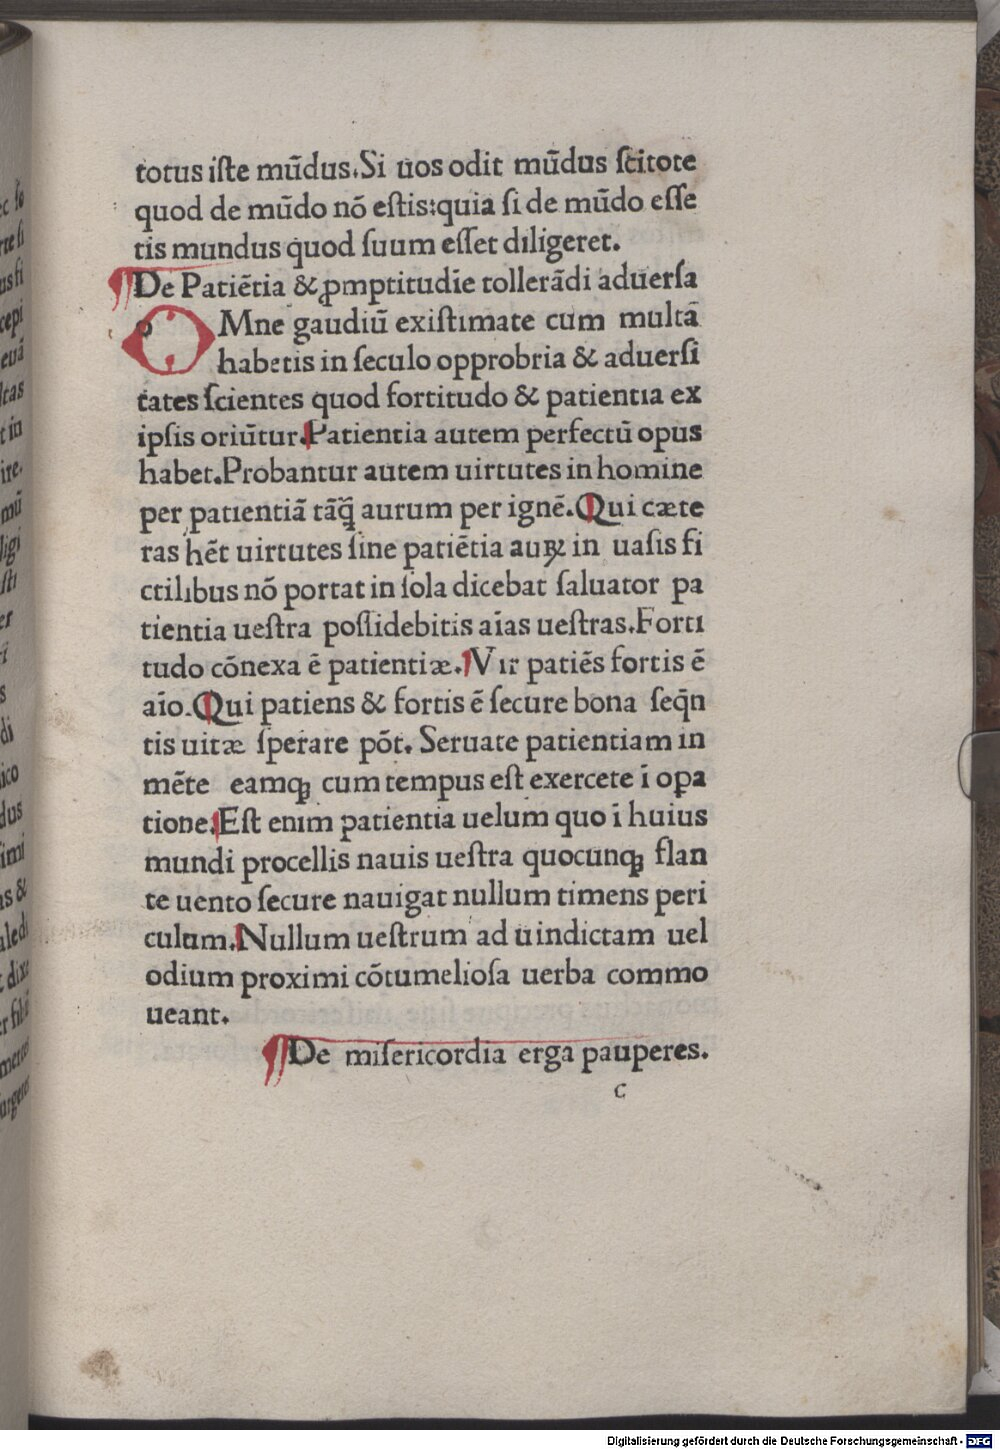 totus iſte mūdus.Si uos odit mūdus ſcitote
quod de mūdo nō eſtis:quia ſi de mūdo eſſe
tis mundus quod ſuum eſſet diligeret.
¶De Patiētia & ꝓmptitudīe tollerādi aduerſa
OMne gaudiū exiſtimate cum multā
habetis in ſeculo opprobria & aduerſi
tates ſcientes quod fortitudo & patientia ex
ipſis oriūtur.Patientia autem perfectū opus
habet.Probantur autem uirtutes in homine
per patientiā tāq̄ aurum per ignē.Qui cæte
ras hēt uirtutes ſine patiētia auꝝ in uaſis fi
ctilibus nō portat in ſola dicebat ſaluator pa
tientia ueſtra poſſidebitis aīas ueſtras.Forti
tudo cōnexa ē patientiæ.Vir patiēs fortis ē
aīo.Qui patiens & fortis ē ſecure bona ſeq̄n
tis uitæ ſperare pōt. Seruate patientiam in
mēte eamqꝫ cum tempus eſt exercete ī oꝑa
tione.Eſt enim patientia uelum quo ī huius
mundi procellis nauis ueſtra quocunqꝫ flan
te uento ſecure nauigat nullum timens peri
culum.Nullum ueſtrum ad uindictam uel
odium proximi cōtumelioſa uerba commo
ueant.
¶De miſericordia erga pauperes.
c
Digitalisierung gefördert durch die Deutsche Forschungsgemeinschaft - DFG